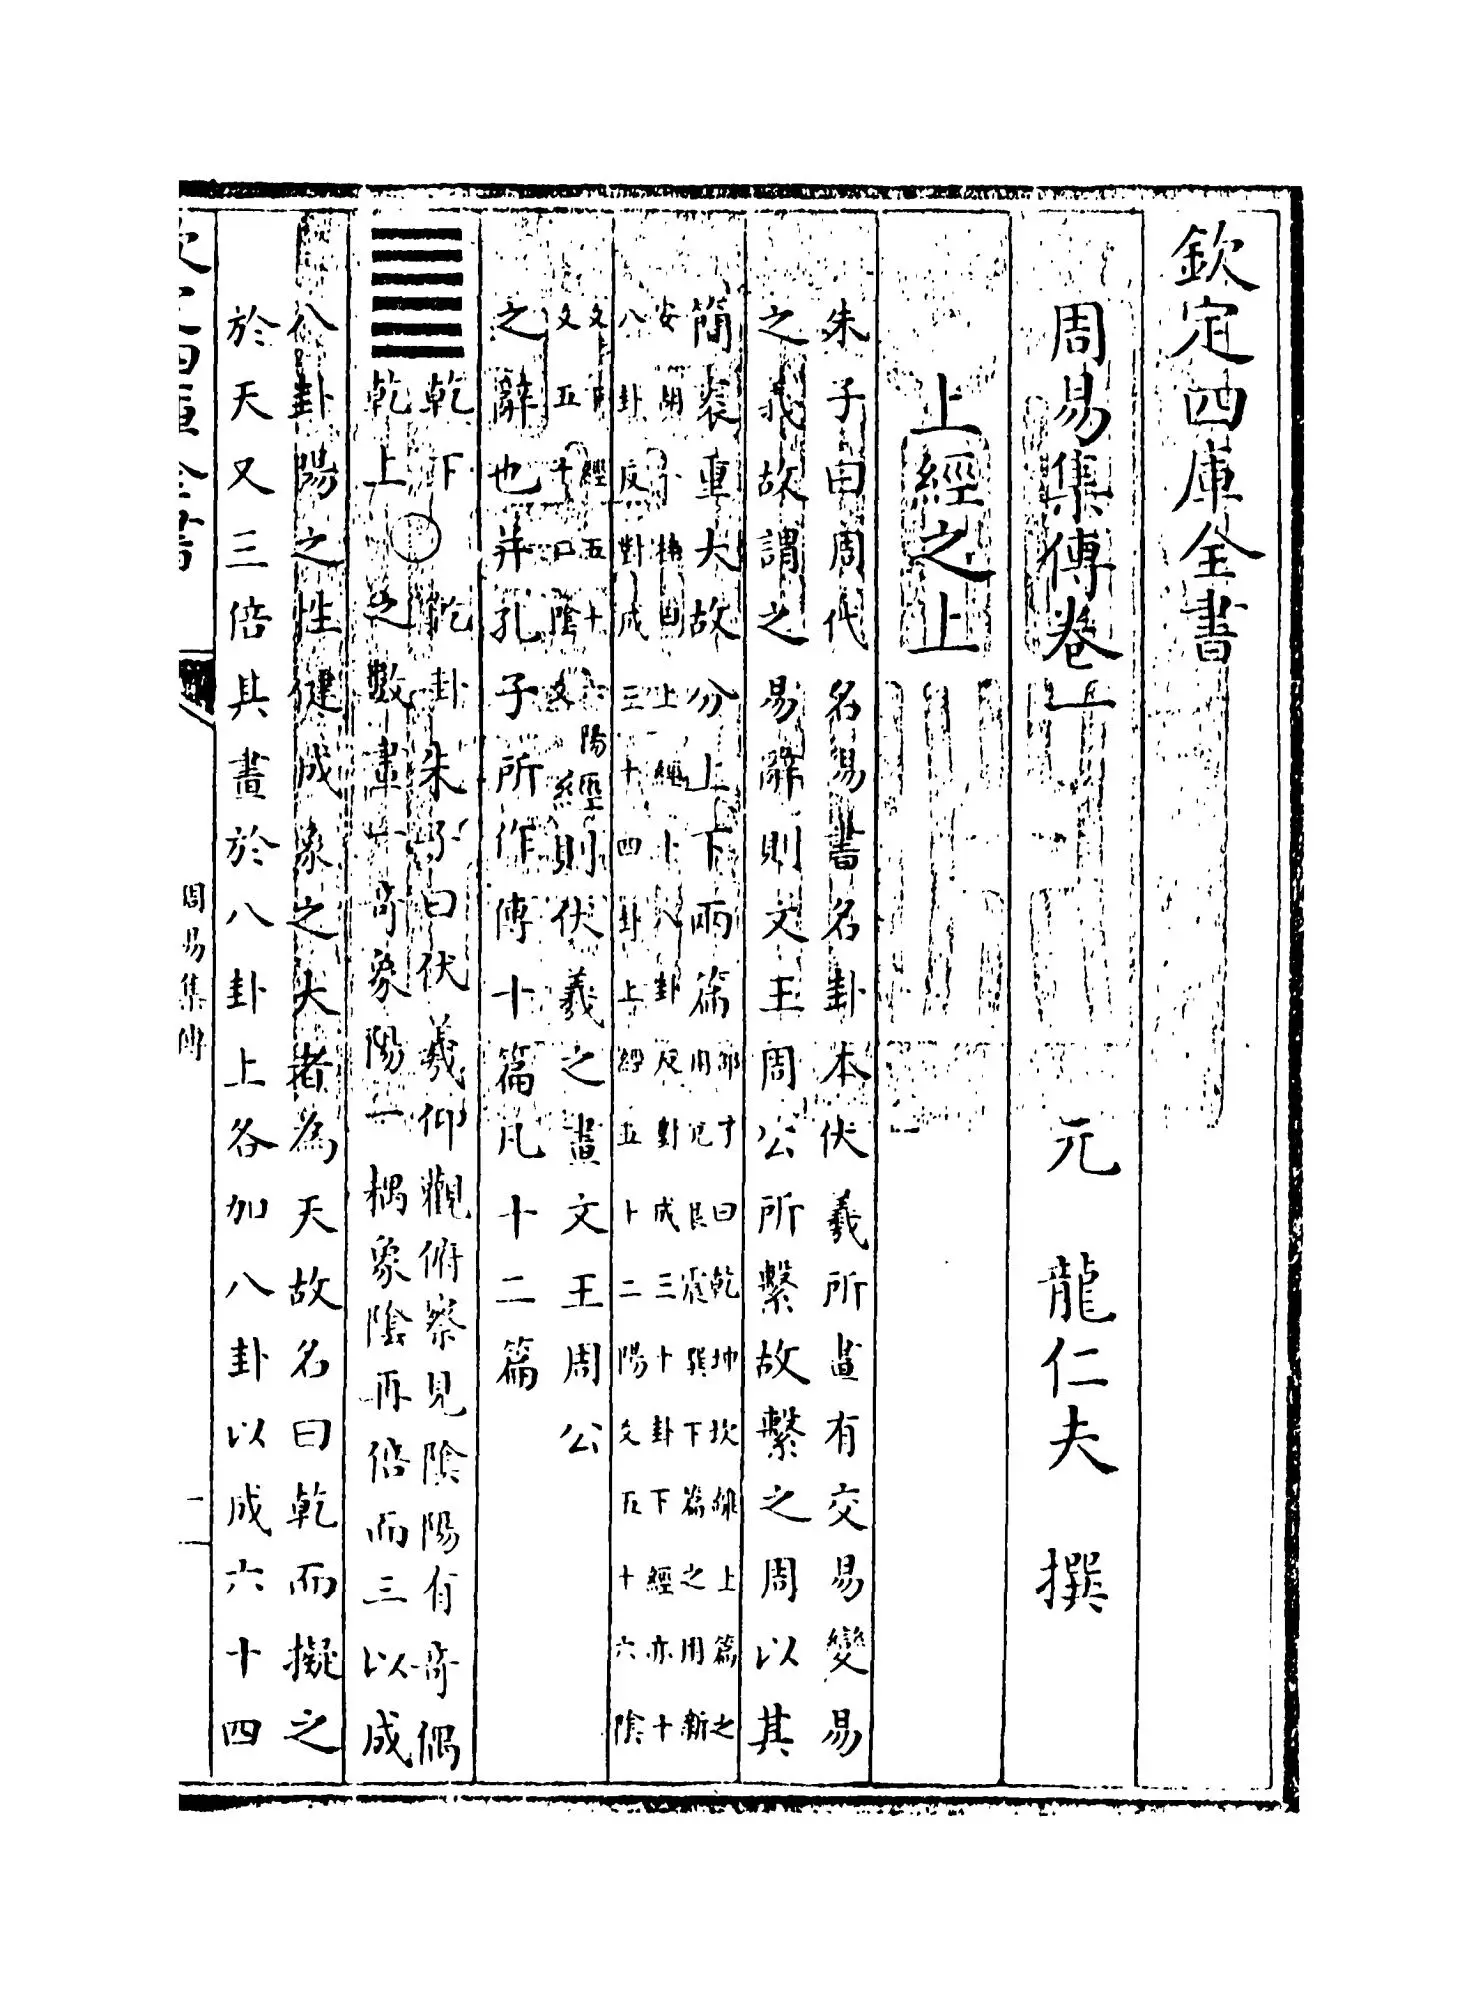 欽定四庫全書
周易集傳卷一
元 龍仁夫 撰
上經之上
朱子曰周代名易書名卦本伏羲所畫有交易變易
之義故謂之易辭則文王周公所繫故繫之周以其
簡袠重大故分上下兩篇
曰乾坤坎離上篇之
用兌艮震巽下篇之用新
上經十八卦反對成三十卦下經亦十
八卦反對成三十四卦上經五十二陽爻五十六陰
爻下經五十六陽
爻五十六陰爻
經則伏羲之畫文王周公
之辭也并孔子所作傳十篇凡十二篇
乾下
乾上
乾卦朱子曰伏羲仰觀俯察見陰陽有奇偶
之數畫一奇象陽一耦象陰再倍而三以成
八卦陽之性健成象之大者為天故名曰乾而擬之
於天又三倍其畫於八卦上各加八卦以成六十四
周易集傳
一